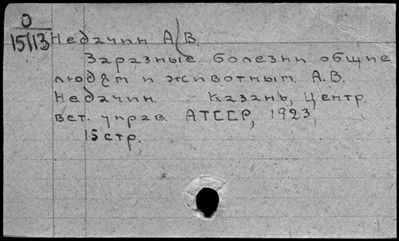 О
15113 Недачин А.В.
Заразные болезни общие
людям и животным. А.В.
Недачин Казань, Центр.
вет. управ. АТССР, 1923
15 стр.